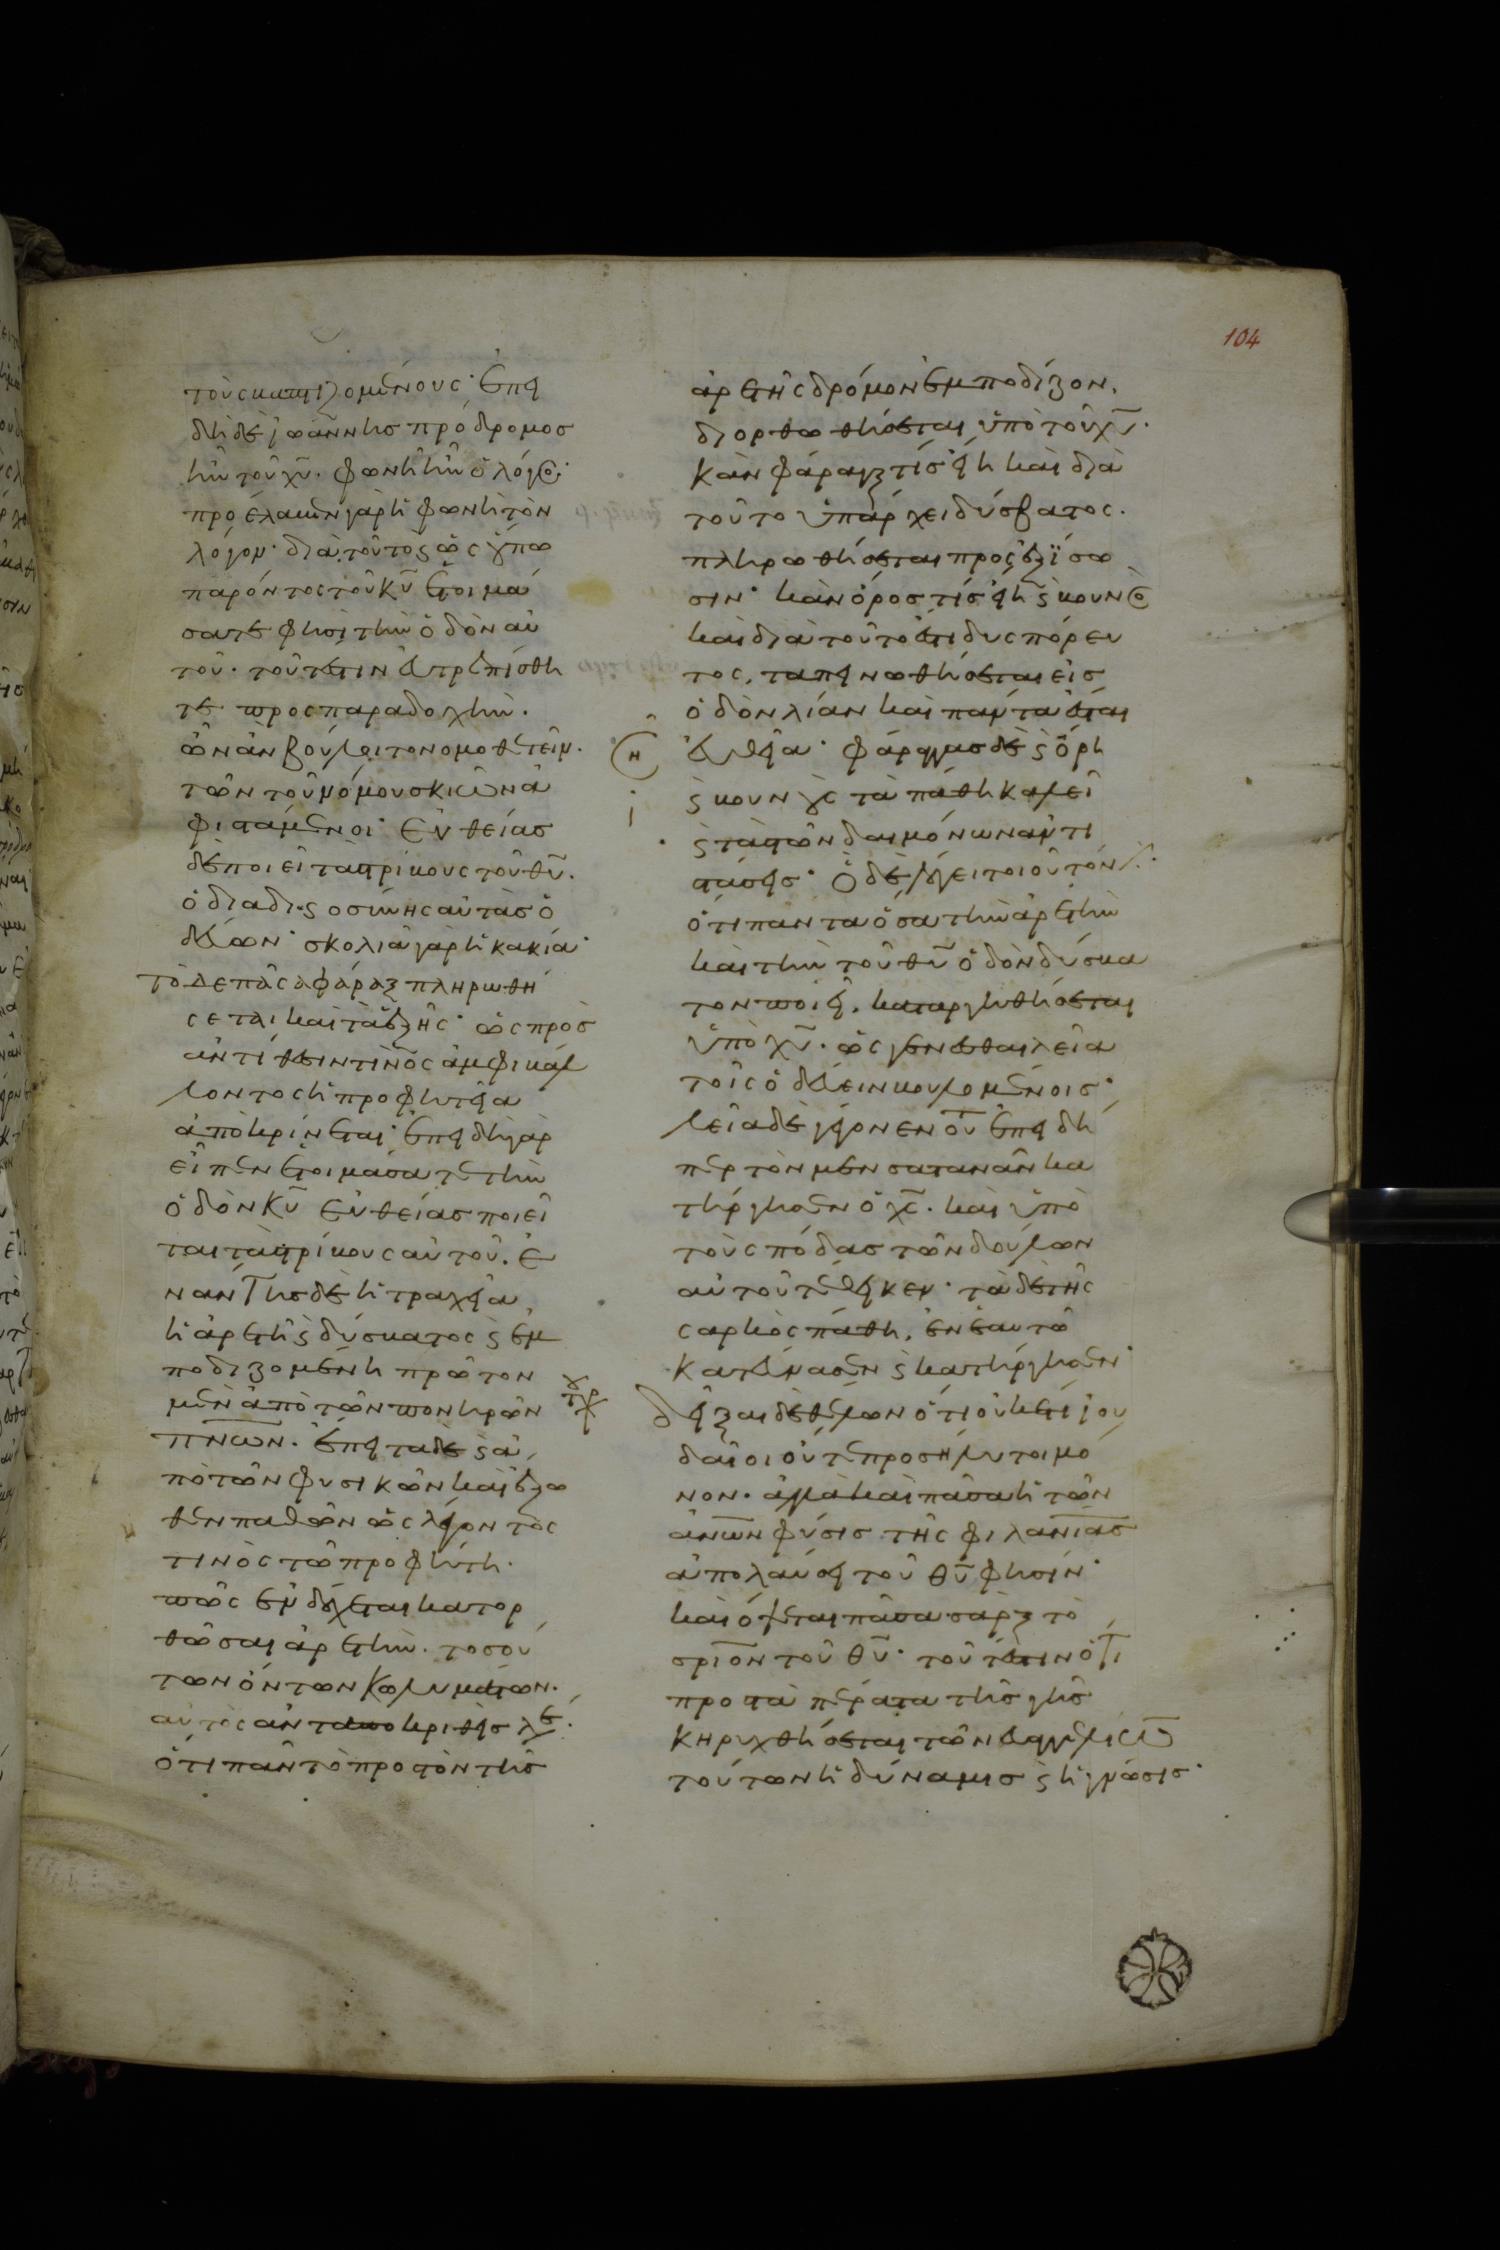 104
τοὺς βαπτιζομένους· ἐπει
δὴ δὲ ἰωάννης πρόδρομος
ἦν τοῦ χῡ. φωνὴ ἦν ὁ λόγος·
προελαύνει γὰρ ἡ φωνὴ τὸν
λόγον· διὰ τοῦτο ϛ ὡς οὔπω
παρόντος τοῦ κῡ ἑτοιμά
σατε φησὶ τὴν ὁδὸν αὐ
τοῦ. τουτέστιν εὐτρεπίσθη
τε πρὸς παραδοχὴν.
ὧν ἂν βούληται νομοθετεῖν.
τῶν τοῦ νόμου σκιῶν ἀ
φιστάμενοι· εὐθείας
δὲ ποιεῖ τὰς τρίβους τοῦ θῡ.
ὁ διὰ δι ϛ οσύνης αὐτὰς ὁ
δεύων· σκολιὰ γὰρ ἡ κακία·
τὸ δε πᾶσα φάραξ πληρωθή
σεται καὶ τὰ ἑξῆς· ὡς πρὸς
ἀντίθεσιν τινὸς ἀμφιβάλ
λοντος ἡ προφητεία
ἀποκρίνεται· ἐπειδὴ γὰρ
εἶπεν ἑτοιμάσατε τὴν
ὁδὸν κῡ εὐθείας ποιεῖ
ται τὰς τρίβους αὐτοῦ. ἐ
ναντίης δὲ ἡ τραχεῖα
ἡ ἀρετὴ ϛ δύσβατος ϛ ἐμ
ποδιζομένη πρῶτον
μὲν ἀπὸ τῶν πονηρῶν
πνων. ἔπειτα δὲ ϛ ἀ
πὸ τῶν φυσικῶν καὶ ἔξω
θεν παθῶν ὡς λέγοντος
τινὸς τῶ προφήτη.
πῶς ἐνδέχεται κατορ
θῶσαι ἀρετὴν. τοσού
των ὄντων κωλυμάτων.
αὐτὸς ἀνταποκριθεὶς λέ.
ὅτι πᾶν τὸ προ τὸν τῆς
ἀρετῆς δρόμον ἐμποδίζον.
διορθωθήσεται ὑπὸ τοῦ χῡ.
κἂν φάραγξ τίς εἴη καὶ διὰ
τοῦτο ὑπάρχει δύσβατος.
πληρωθήσεται πρὸς ἐξίσω
σιν· κἂν ὄρος τίς εἴη ϛ βουνὸς
καὶ διὰ τοῦτο ἔτι δυσπόρευ
τος, ταπεινωθήσεται εἰς
ὁδὸν λίαν καὶ πάντα ἔσται
εὐθεῖα· φάραγγας δὲ ϛ ὄρη
ϛ βουνοὺς τὰ πάθη καλεῖ
ϛ τὰς τῶν δαιμόνων ἀντι
στάσεις· ὃ δὲ λέγει τοιοῦτόν ἐ.
ὅτι πάντα ὅσα τὴν ἀρετὴν
καὶ τὴν τοῦ θῡ ὁδὸν δύσβα
τον ποιεῖ. καταργηθήσεται
ὑπὸ χῡ. ὡς γενέσθαι λεία
τοῖς ὁδεύειν βουλομένοις·
λεία δὲ γέγονεν οὖν ἐπειδὴ
περ τὸν μὲν σατανᾶν κα
τήργησεν ὁ χς̄. καὶ ὑπὸ
τοὺς πόδας τῶν δούλων
αὐτοῦ τέθεικεν· τὰ δὲ τῆς
σαρκὸς πάθη, ἐν ἑαυτῶ
κατεύνασεν ϛ κατήργησεν·
δεῖξαι δὲ θέλων ὅτι οὐκέτι ἰου
δαῖοι οὔτε προσήλυτοι μό
νον. ἀλλὰ καὶ πᾶσα ἡ τῶν
ἀνων φύσις τῆς φιλανιας
ἀπολαύσει τοῦ θῡ φησὶν·
καὶ ὄψεται πᾶσα σὰρξ τὸ
σριον τοῦ θῡ· τουτέστιν ὅτι
προ τὰ πέρατα τῆς γῆς
κηρυχθήσεται τῶν εὐαγγελίων
τούτων ἡ δύναμις ϛ ἡ γνῶσις·